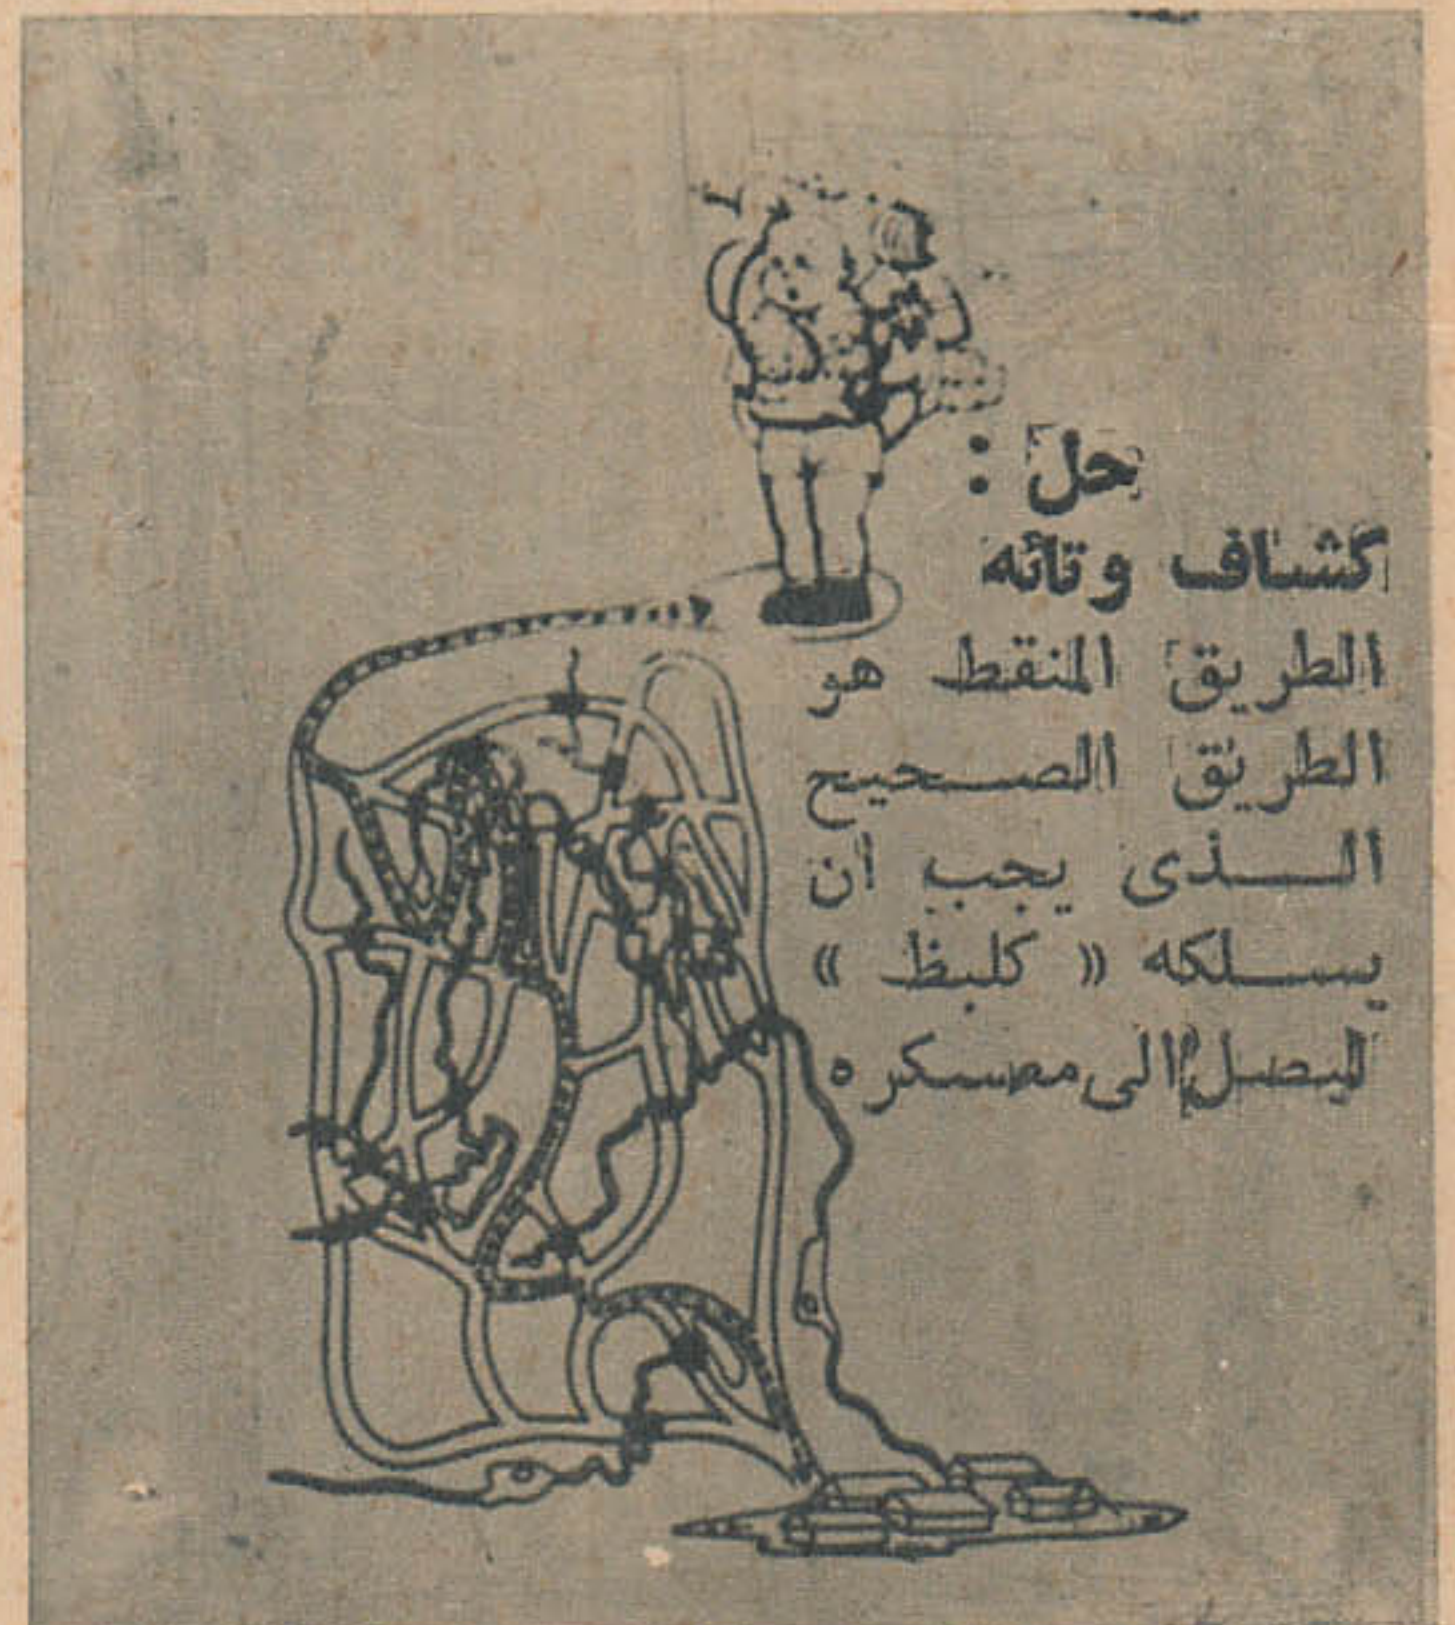 حل :
كشاف وتائه
الطريق المنقط هو
الطريق الصحيح
الـذى يجب ان
يسلكه « كلبظ »
ليصل الى معسكره